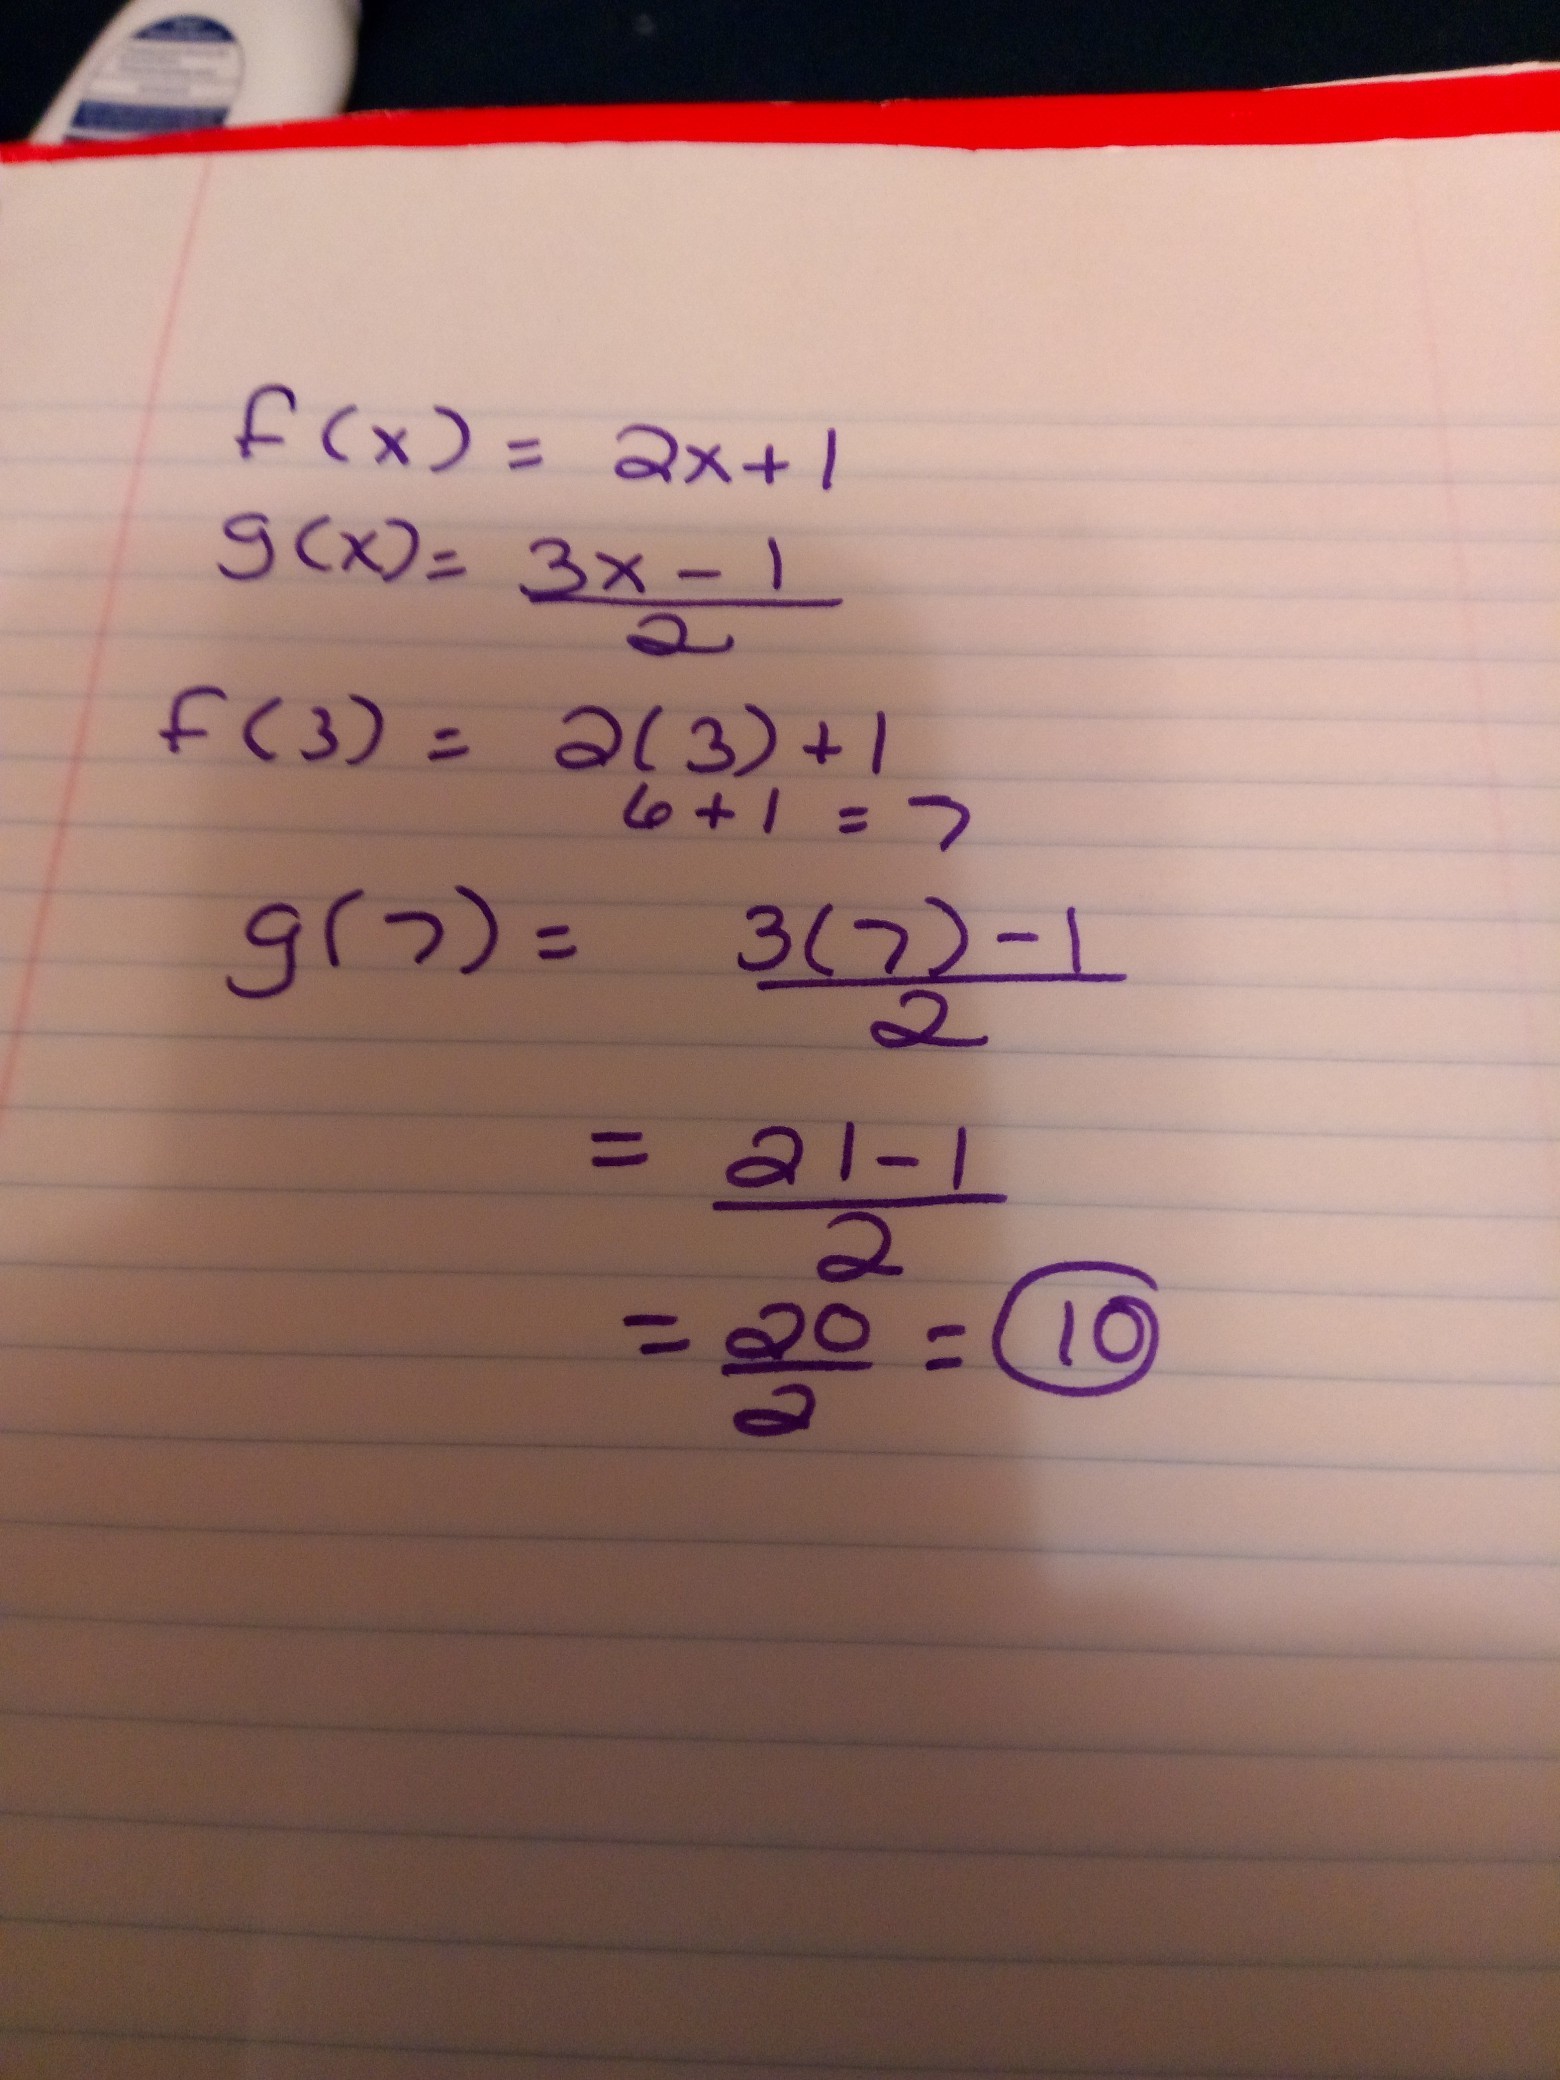 f(x) = 2x+1
g(x) = 3x - 1
2
f(3) = 2(3)+1
6+1 = 7
g(7) = 3(7)-1
2
= 21-1
2
= 20 = 10
2